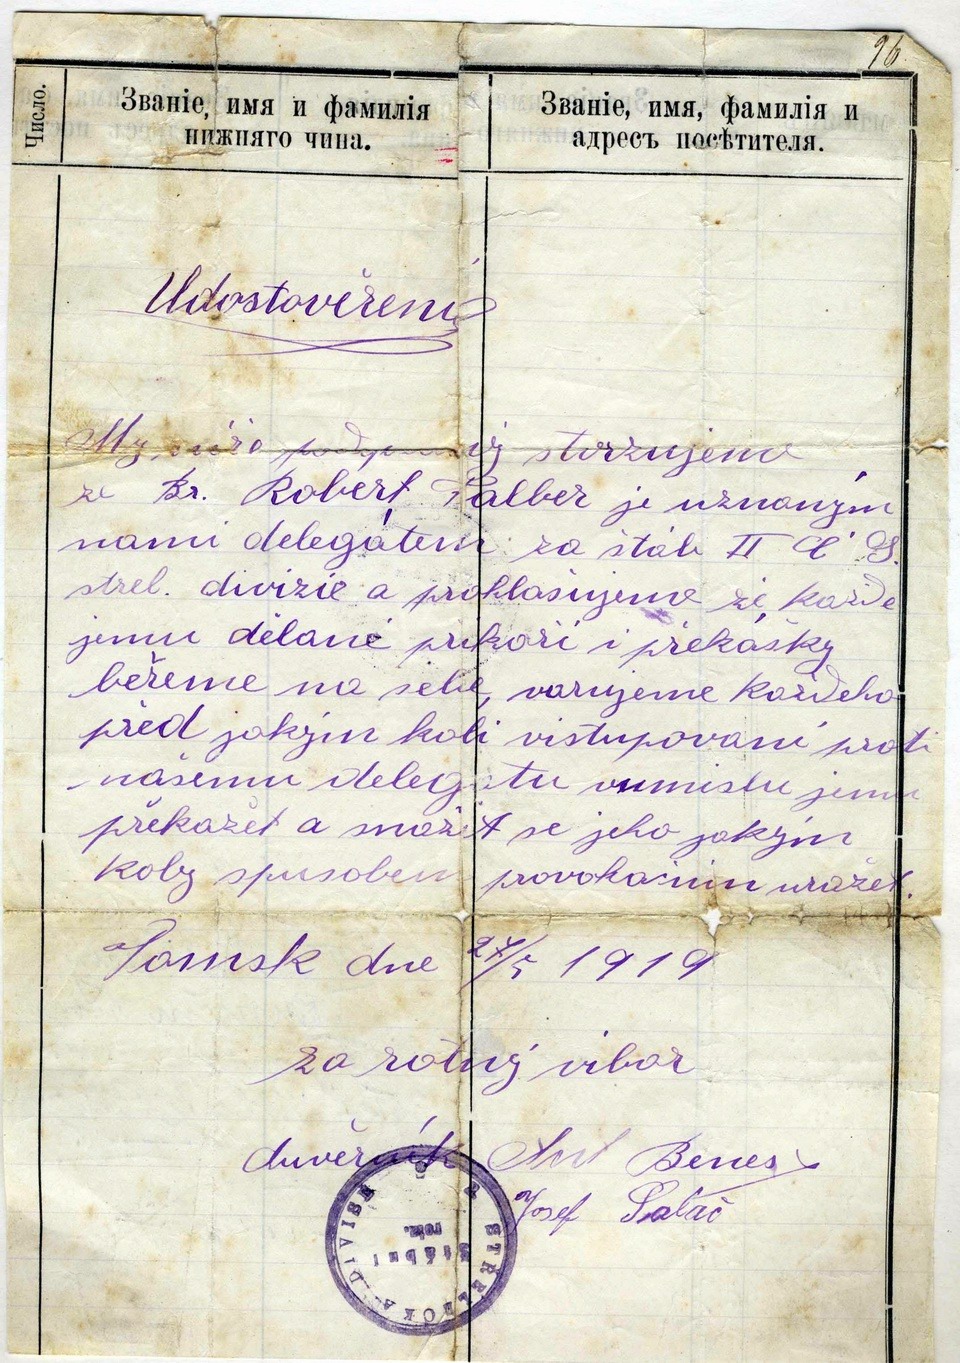 96
Число.
Званіе, имя и фамилія
нижняго чина.
Званіе, имя, фамилія и
адресъ посѣтителя.
Udostověření
My níže podepsaný stvrzujeme
že Br. Robert Palber je uznaným
nami delegátem za štáb II Č S.
střel. divizie a prohlašujeme že každe
jemu dělané přikoří i překášky
béřeme na sebe, varujeme každeho
před jakým koli vistupovaní proti
našemu delegatu vumislu jemu
překažet a snažit se jeho jakým
koby spusobem provokacním uražet.
Tomsk dne 27/5 1919
za rotný vibor
duvěrník Ant Benes
Josef
2 STŘELECKA DIVISE
Štábní
rota.